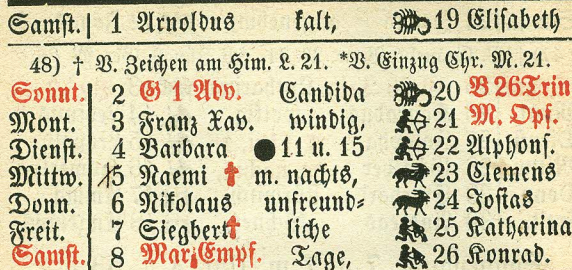 Samst. 1 Arnoldus kalt, 19 Elisabeth
48) † V. Zeichen am Him. L. 21. *V. Einzug Chr. M. 21.
Sonnt. 2 G 1 Adv. Candida 20 B 26 Trin
Mont. 3 Franz Xav. windig, 21 M. Opf.
Dienst. 4 Barbara ●11 u. 15 22 Alphons.
Mittw. 5 Naemi † m. nachts, 23 Clemens
Donn. 6 Nikolaus unfreund- 24 Josias
Freit. 7 Siegbert † liche 25 Katharina
Samst. 8 Mar. Empf. Tage, 26 Konrad.